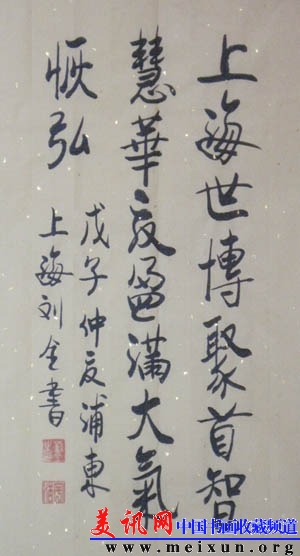 上海世博聚首智
慧華夏盈滿大氣
恢弘
戊子仲夏浦東
上海刘書
美讯网 中国书画收藏频道
www.meixun.org